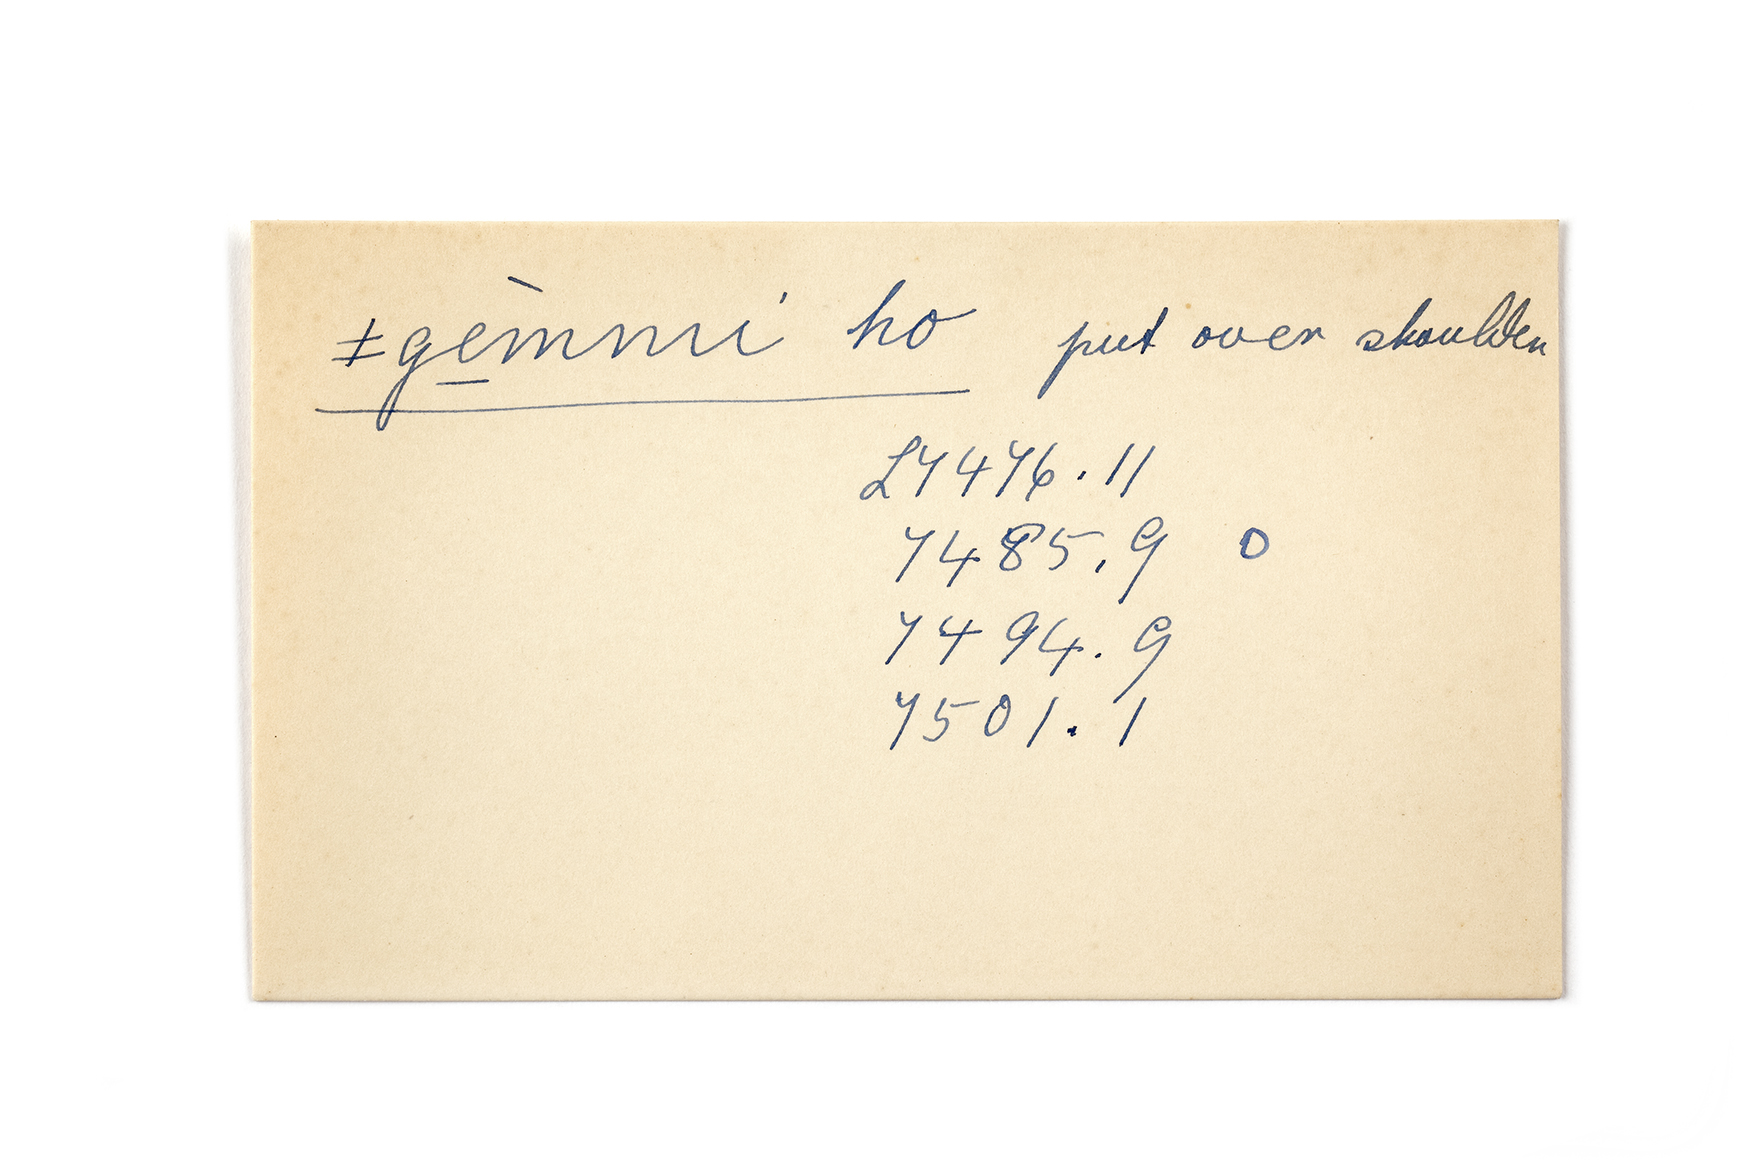 ǂgè̠mmi ho put over shoulder
L7476.11
7485.9 O
7494.9
7501.1